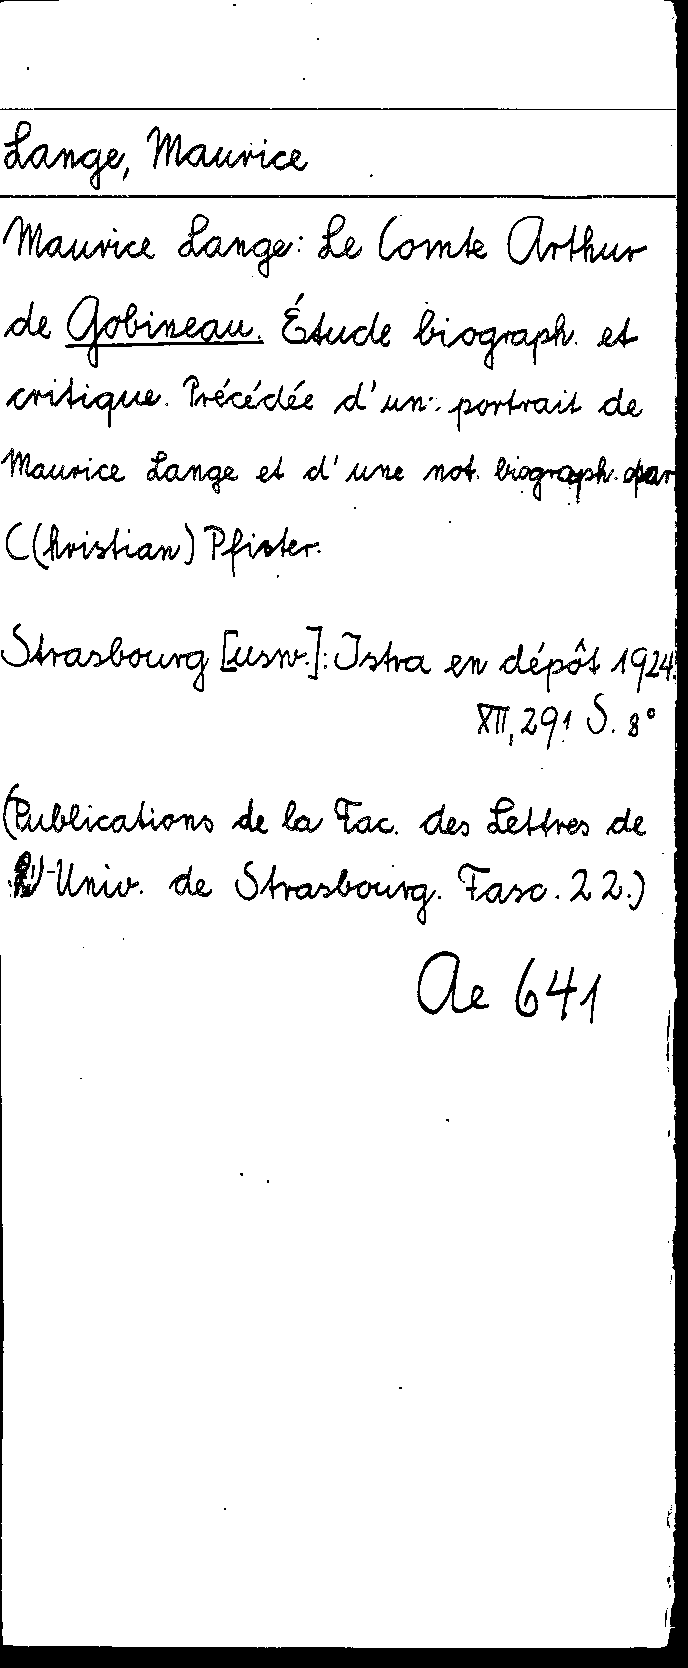 Lange, Maurice
Maurice Lange: Le Comte Arthur
de Gobineau. Étude biograph. et
critique. Précédée d'un. portrait de
Maurice Lange et d'une not. biograph. par
C(hristian) Pfister.
Strasbourg [usw.]: Istra en dépôt 1924.
XII, 291 S. 8°
(Publications de la Fac. des Lettres de
l'Univ. de Strasbourg. Fasc. 22.)
Ae 641